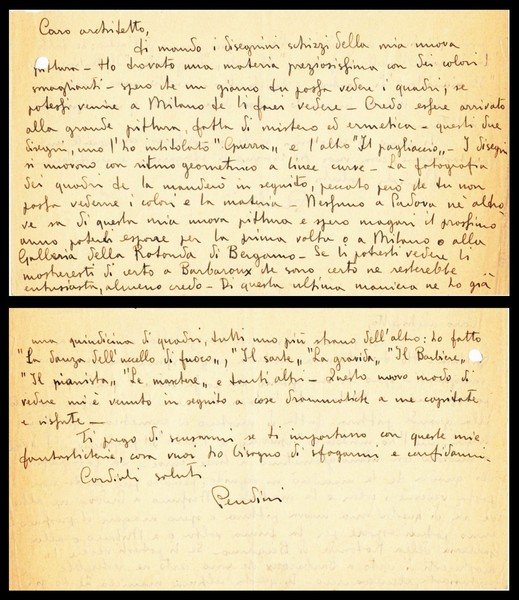 Caro architetto,
ti mando i disegnini schizzi della mia nuova
pittura - Ho trovato una materia preziosissima con dei colori
smaglianti - spero che un giorno tu possa vedere i quadri; se
potessi venire a Milano te li farei vedere - Credo essere arrivato
alla grande pittura, fatta di mistero ed ermetica - questi due
disegni, uno l'ho intitolato "Guerra" e l'altro "Il pagliaccio" - I disegni
si muovono con ritmo geometrico a linee curve - La fotografia
dei quadri te la manderò in seguito, peccato però che tu non
possa vederne i colori e la materia - Nessuno a Padova nè altrove
sa di questa mia nuova pittura e spero magari il prossimo
anno poterla esporre per la prima volta o a Milano o alla
Galleria della Rotonda di Bergamo - Se li potesti vedere li
mostreresti di certo a Barbaroux che sono certo ne resterebbe
entusiasta, almeno credo - Di questa ultima maniera ne ho già
una quindicina di quadri, tutti uno più strano dell'altro: ho fatto
"La danza dell'uccello di fuoco", "Il sarto" "La gravida" "Il Barbiere"
"Il pianista" "Le maschere" e tanti altri - Questo nuovo modo di
vedere mi è venuto in seguito a cose drammatiche a me capitate
e vissute -
Ti prego di scusarmi se ti importuno con queste mie
fantasticherie, cosa vuoi ho bisogno di sfogarmi e confidarmi.
Cordiali saluti
Pendini